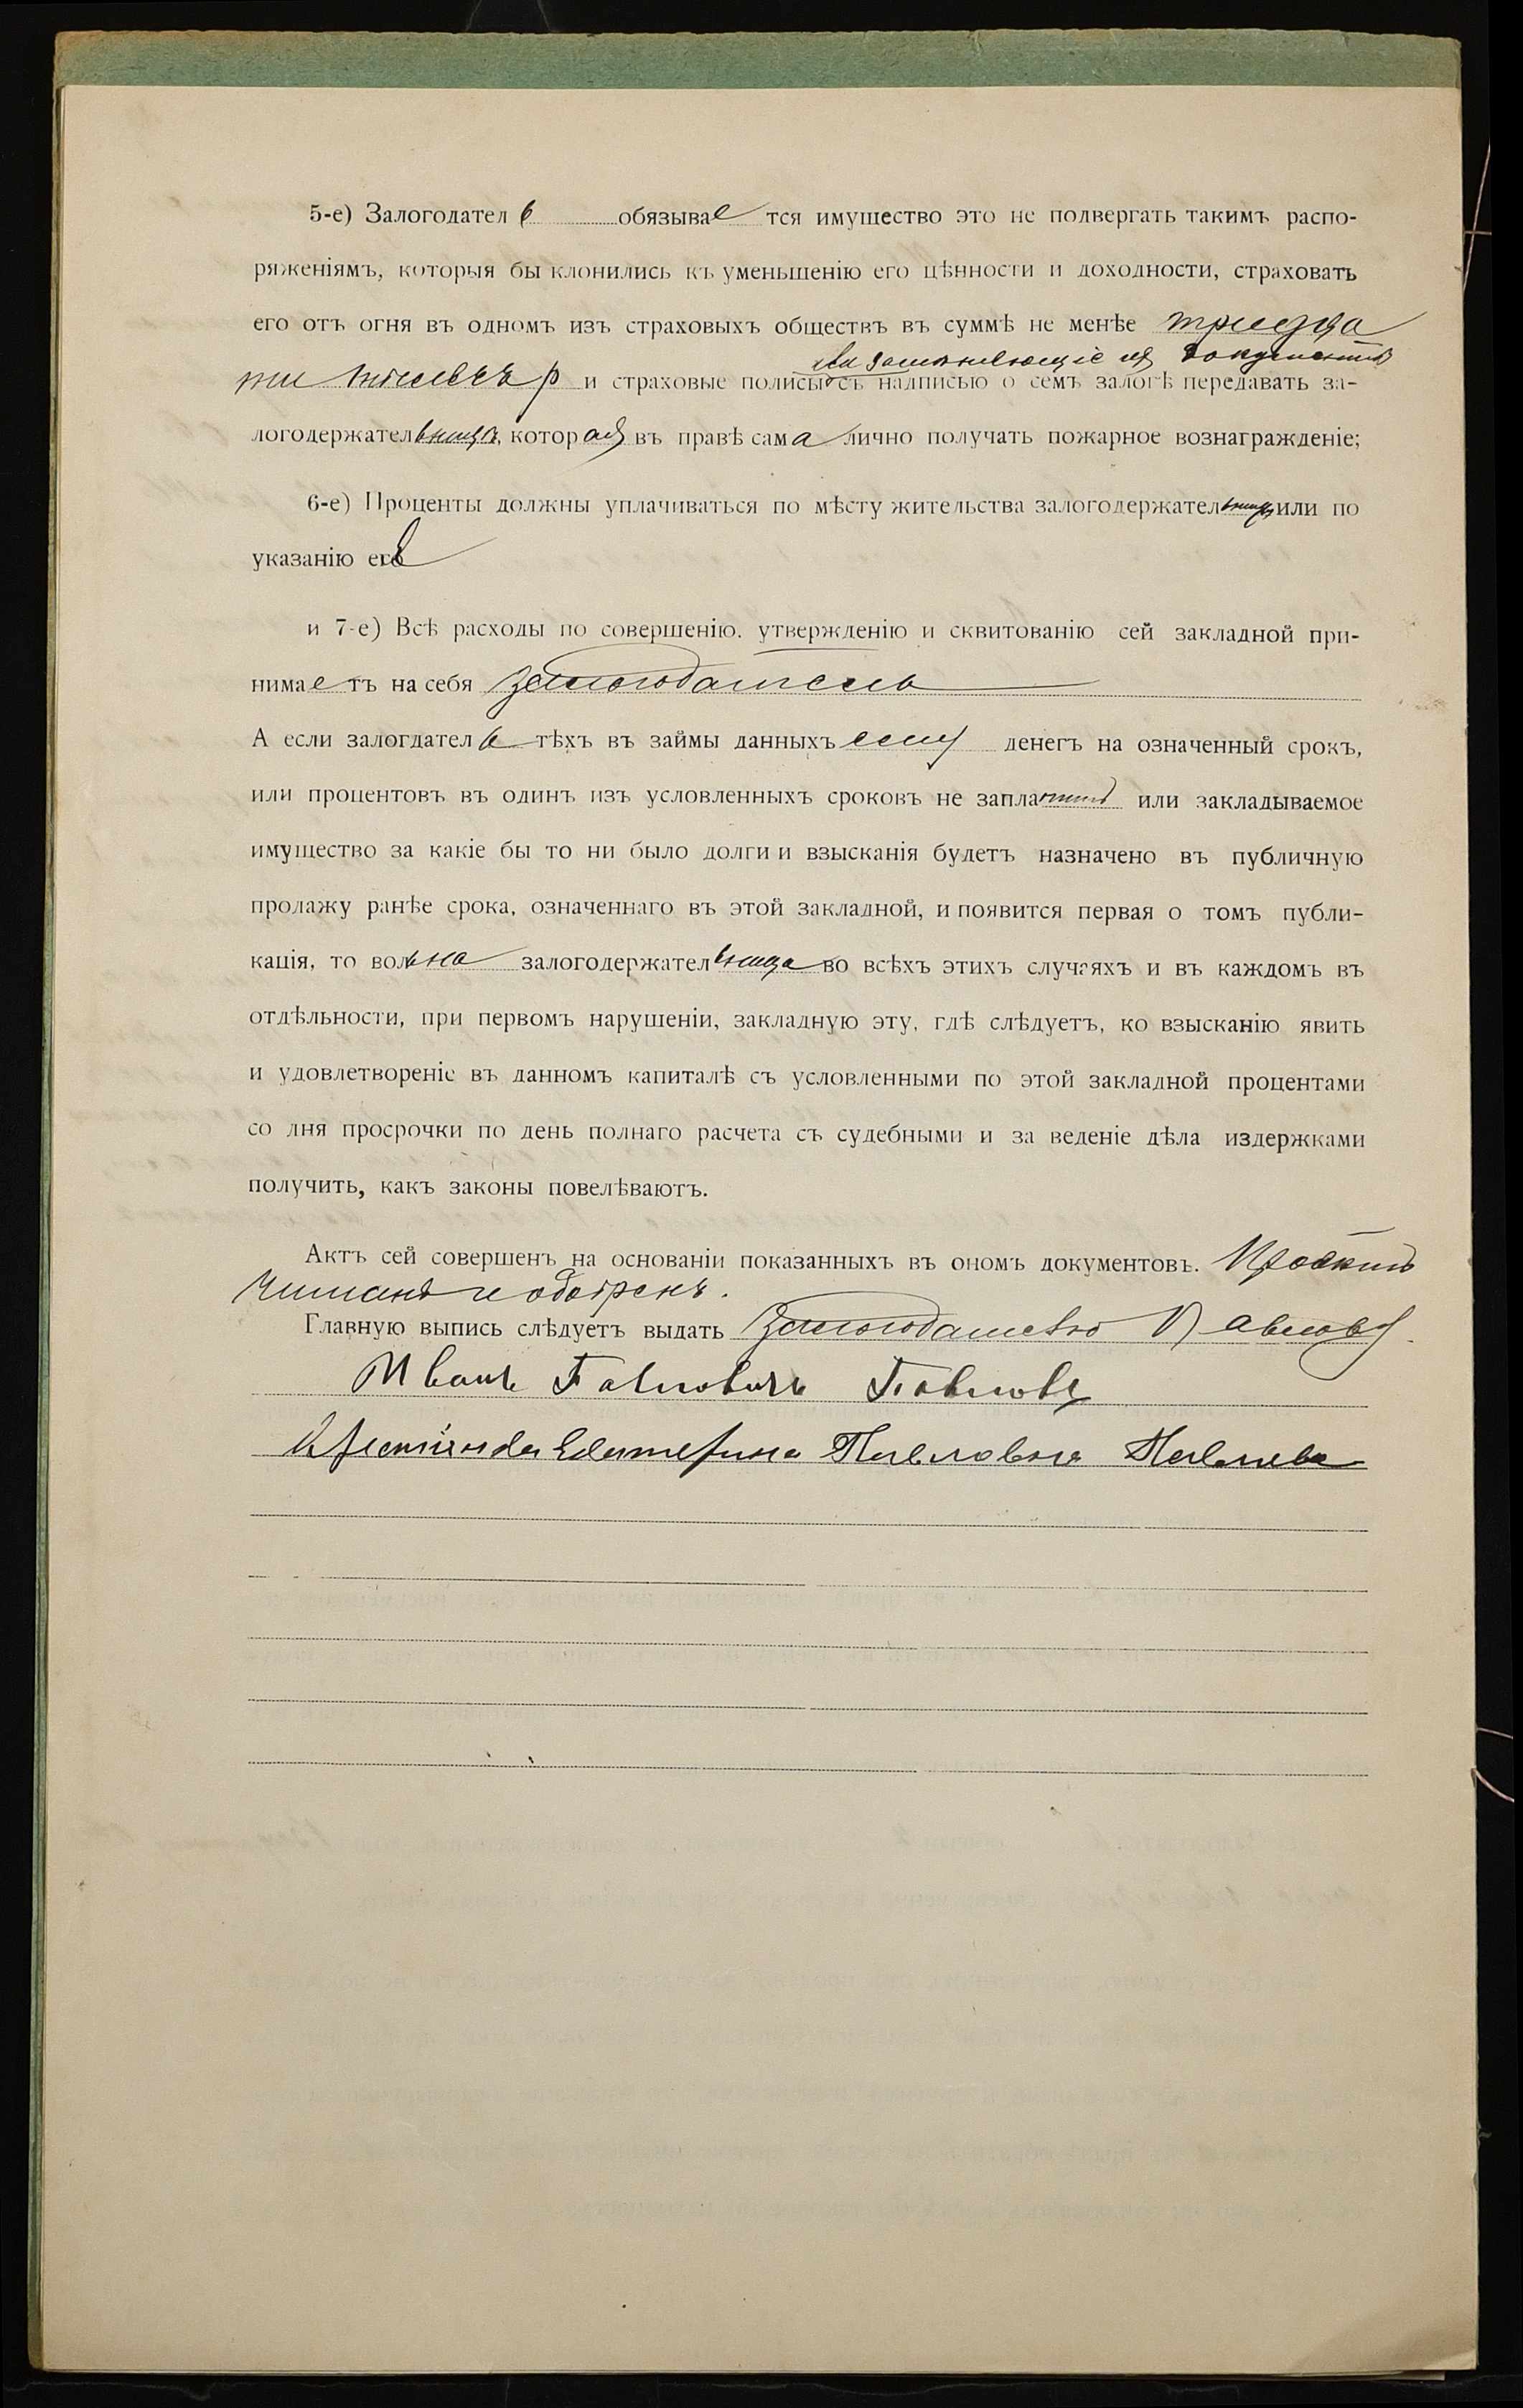 5-е) Залогодатель обязывается имущество это не подвергать такимъ распо-
ряженіямъ, которыя бы клонились къ уменьшенію его цѣнности и доходности, страховать
его отъ огня въ одномъ изъ страховыхъ обществъ въ суммѣ не менѣе тридца
или замѣняющіе ихъ документы
ти тысячъ р и страховые полисы съ надписью о семъ залогѣ передавать за-
логодержательницѣ, которая въ правѣ сама лично получать пожарное вознагражденіе;
6-е) Проценты должны уплачиваться по мѣсту жительства залогодержательницы или по
указанію ея
и 7-е) Всѣ расходы по совершенію, утвержденію и сквитованію сей закладной при-
нимаетъ на себя залогодатель
А если залогдатель тѣхъ въ займы данныхъ ему денегъ на означенный срокъ,
или процентовъ въ одинъ изъ условленныхъ сроковъ не заплатитъ или закладываемое
имущество за какіе бы то ни было долги и взысканія будетъ назначено въ публичную
продажу ранѣе срока, означеннаго въ этой закладной, и появится первая о томъ публи-
кація, то вольна залогодержательница во всѣхъ этихъ случаяхъ и въ каждомъ въ
отдѣльности, при первомъ нарушеніи, закладную эту, гдѣ слѣдуетъ, ко взысканію явить
и удовлетвореніе въ данномъ капиталѣ съ условленными по этой закладной процентами
со дня просрочки по день полнаго расчета съ судебными и за веденіе дѣла издержками
получить, какъ законы повелѣваютъ.
Актъ сей совершенъ на основаніи показанныхъ въ ономъ документовъ. Проектъ
читанъ и одобренъ.
Главную выпись слѣдуетъ выдать залогодателю Павлову
Иванъ Павловичъ Павловъ
Крестьянка Екатерина Павловна Павлова